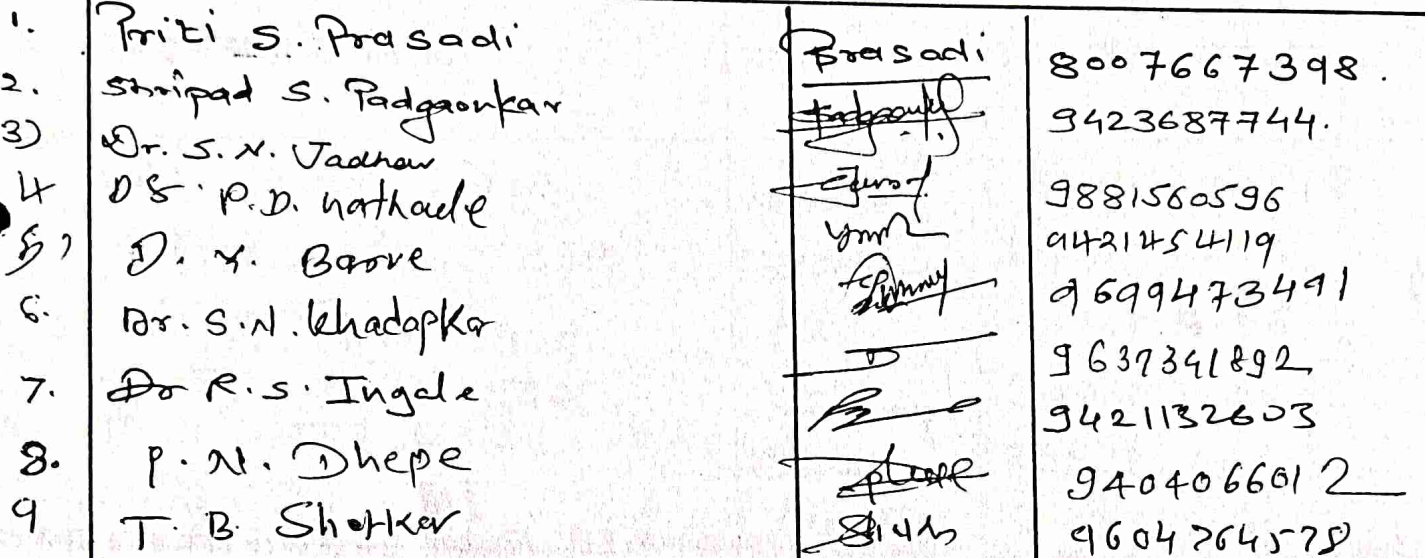 1. Priti S. Prasadi Prasadi 8007667398.
2. Shripad S. Padgaonkar 9423687744.
3) Dr. S. N. Jadhav 9881560596
4 P.D. nathade 9421454119
5) D. Y. Barve 9699473491
6. Dr. S.N. Khadapkar 9637341892
7. R.S. Ingale 9421132603
8. P. N. Dhepe 9404066012
9 T. B. 9604764578